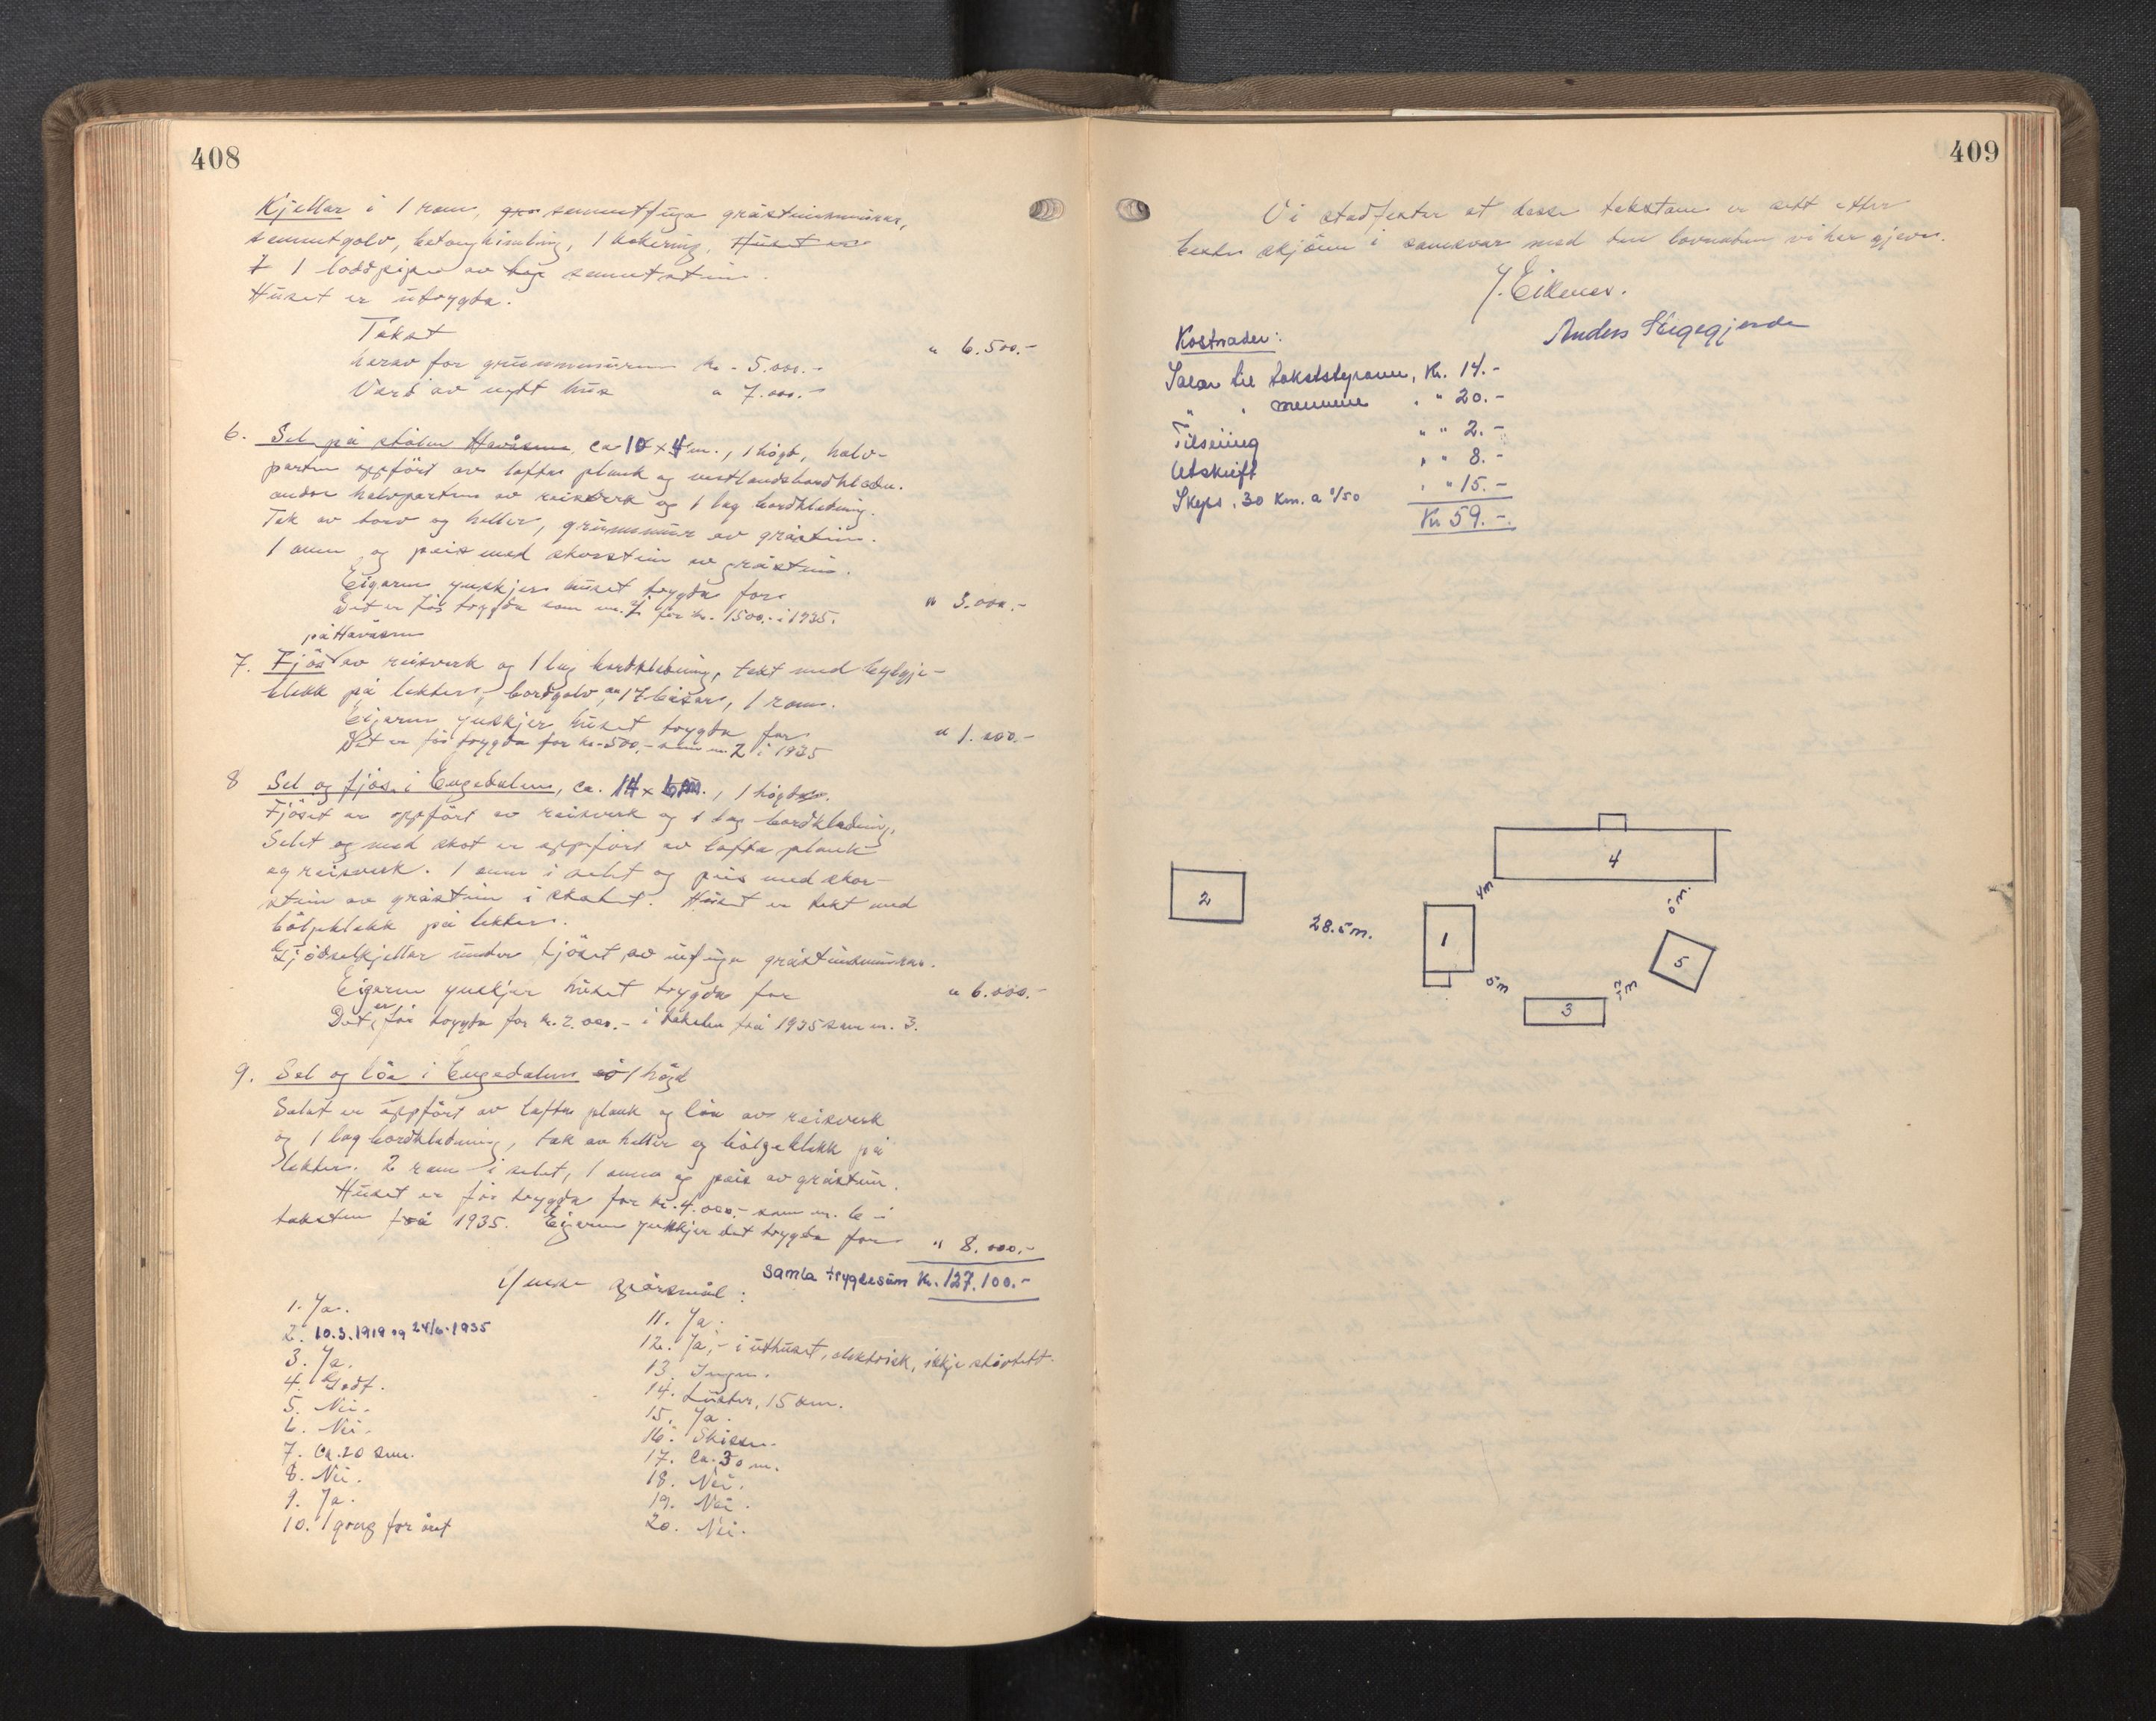 408
Kjellar i 1 rom, sementfuga gråsteinsmurar,
sementgolv, betonghimling, 1 hekering. Huset er
1 loddpipe av sementstein.
Huset er utrygda.
Takst " 6.500.-
herav for grunnmuren kr. 5.000.-
Verd av nytt hus " 7.000.-
6. Sel på stölen Havåsen, ca 10 x 4 m., 1 högd, halv-
parten oppfört av lafta plank og vestlandsbordkledn.
andre halvparten av reisverk og 1 lag bordkledning.
Tak av torv og heller, grunnmur av gråstein.
1 omn og peis med skorstein av gråstein.
Eigaren ynskjer huset trygda for " 3.000.-
Det er för trygda som nr. 1 for kr. 1500.- i 1935.
på Havåsen
7. Fjös av reisverk og 1 lag bordkledning, tekt med bylgje-
blekk på lekter, bordgolv, 17 båsar, 1 rom.
Eigaren ynskjer huset trygda for " 1.000.-
Det er för trygda for kr. 500.- som nr. 2 i 1935
8 Sel og fjös i Engedalen, ca. 14 x 6 m., 1 högd.
Fjöset er oppfört av reisverk og 1 lag bordkledning,
Selet og med skot er oppfört av lafta plank
og reisverk. 1 omn i selet og peis med skor-
stein av gråstein i skotet. Huset er tekt med
bölgeblekk på lekter.
Gjödselkjellar under fjöset av ufuga gråsteinsmurar.
Eigaren ynskjer huset trygda for " 6.000.-
Det er för trygda for kr. 2.000.- i taksten frå 1935 som nr. 3.
9. Sel og löe i Engedalen 1 högd
Selet er oppfört av lafta plank og löa av reisverk
og 1 lag bordkledning, tak av heller og bölgeblekk på
lekter. 2 rom i selet, 1 omn og peis av gråstein.
Huset er för trygda for kr. 4.000.- som nr. 6 i
taksten frå 1935. Eigaren ynskjer det trygda for " 8.000.-
Samla trygdesum Kr. 127.100.-
Ymse spörsmål:
1. Ja.
2. 10.3.1919 og 24/6.1935
3. Ja.
4. Godt.
5. Nei.
6. Nei.
7. Ca. 20 sm.
8. Nei.
9. Ja.
10. 1 gong for året
11. Ja.
12. Ja,- i uthuset, elektrisk, ikkje stövtett.
13. Ingen.
14. Luster, 15 km.
15. Ja.
16. Skisse.
17. Ca. 30 m.
18. Nei.
19. Nei.
20. Nei.
409
Vi stadfester at desse takstane er sett etter
beste skjönn i samsvar med den lovnaden vi her gjeve.
J. Eikenes.
Anders Skigegjerde
Kostnader:
Salar til takststyraren, Kr. 14.-
" " mennene " " 20.-
Tilseiing " " 2.-
Utskrift " " 8.-
Skyss, 30 km. a 0/50 " " 15.-
Kr 59.-
4
2
4 m
6 m.
28.5 m.
1
5
5 m
3